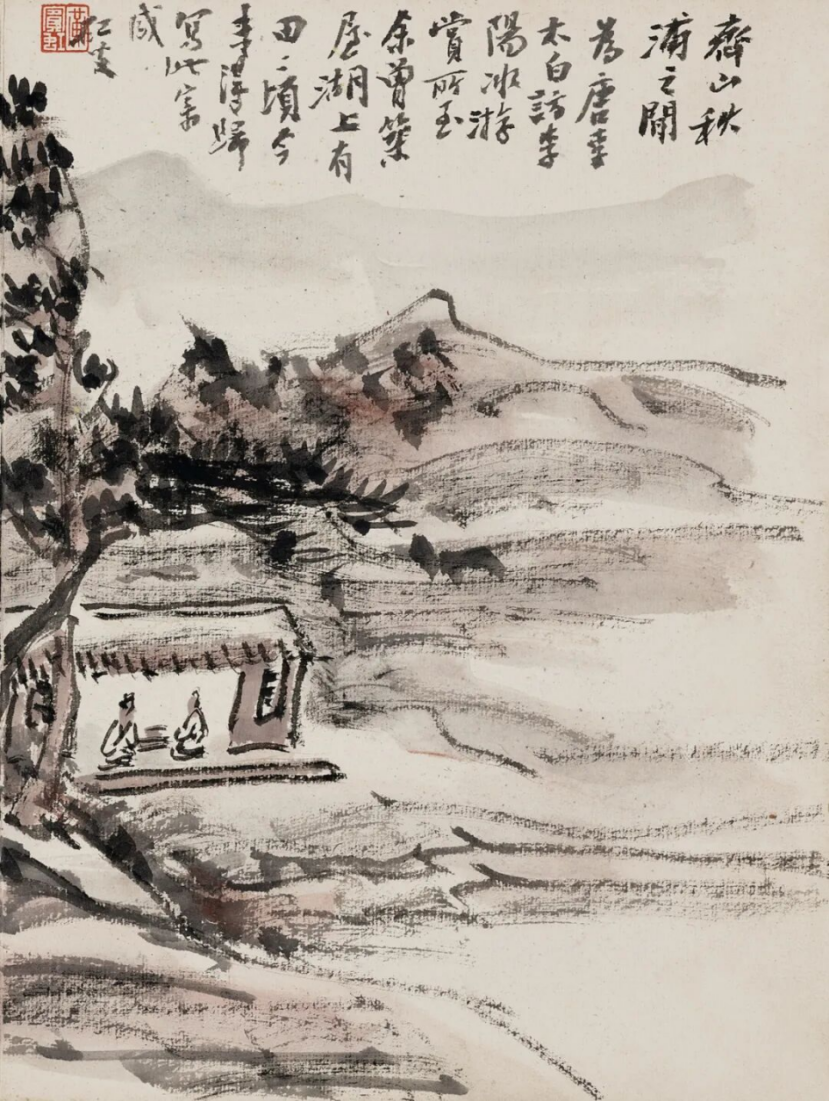 齊山秋
浦之間
為唐李
太白訪李
陽冰游
賞所至
余曾築
屋湖上有
田二頃今
未得歸
寫此寄
感
虹叟
黃賓虹